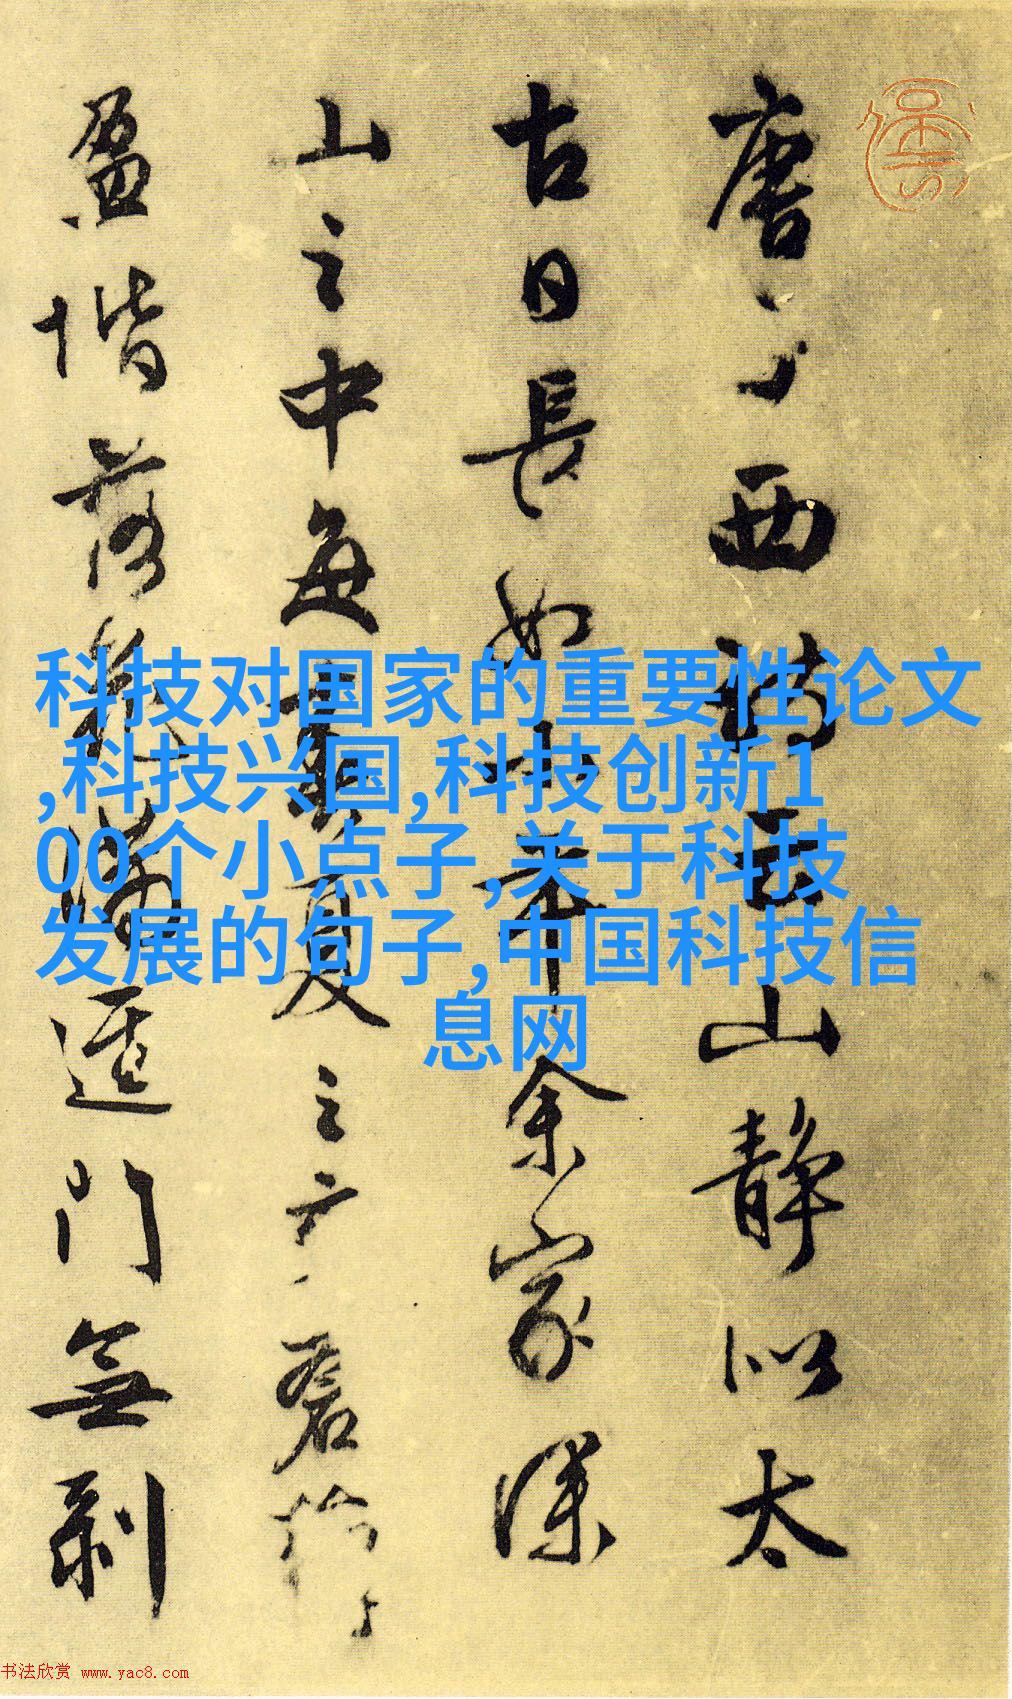 唐子西詩云山静似太
古日長如小年余家深
山之中每春夏之交蒼蘚
盈階落花滿逕門無剥
科技对国家的重要性论文
,科技兴国,科技创新1
00个小点子,关于科技
发展的句子,中国科技信
息网
书法欣赏 www.yac8.com